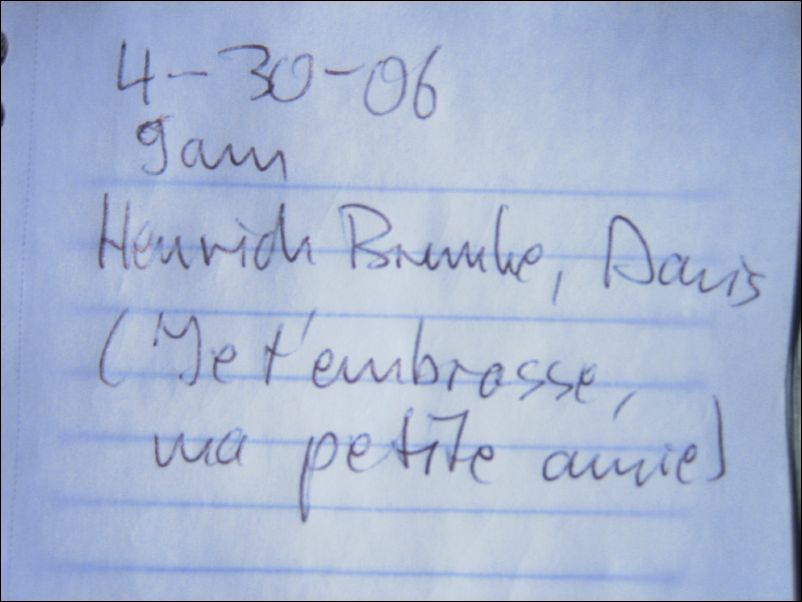 4-30-06
9am
Heinrich Brumke, Davis
(Je t'embrasse,
ma petite amie)